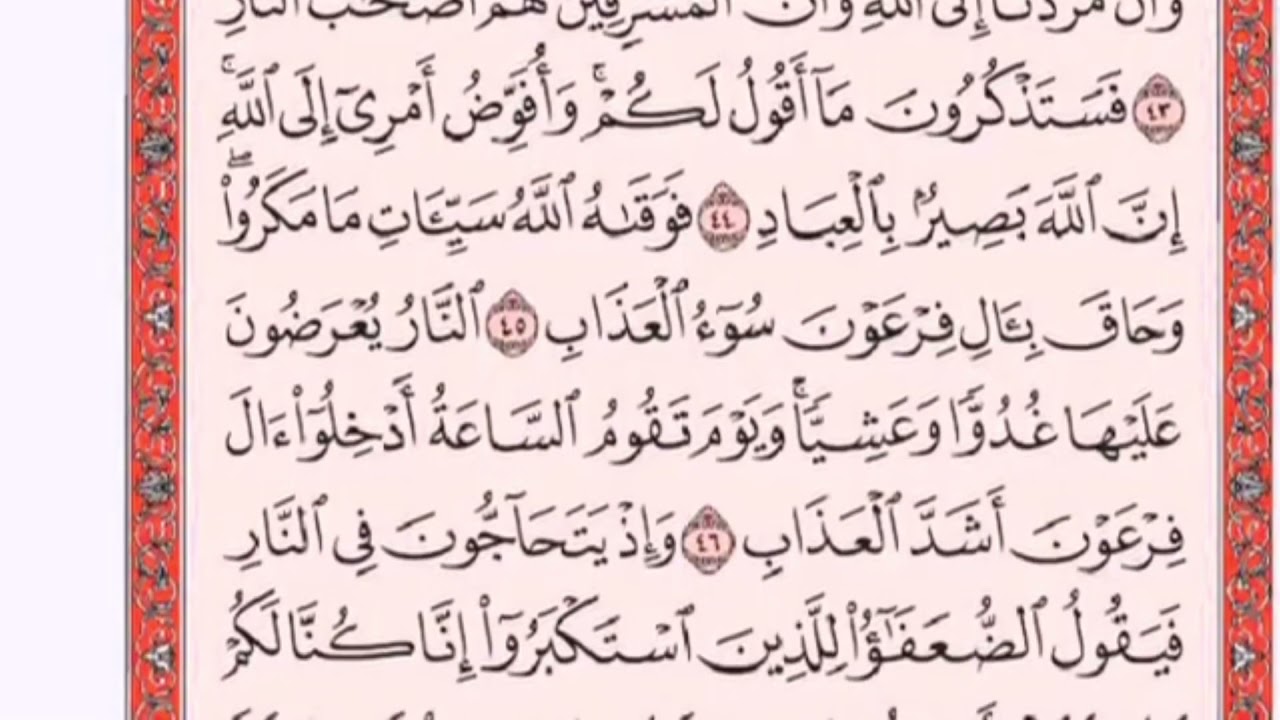 وَأَنَّ مَرَدَّنَآ إِلَى ٱللَّهِ وَأَنَّ ٱلْمُسْرِفِينَ هُمْ أَصْحَٰبُ ٱلنَّارِ
٤٣ فَسَتَذْكُرُونَ مَآ أَقُولُ لَكُمْ ۚ وَأُفَوِّضُ أَمْرِىٓ إِلَى ٱللَّهِ ۚ
إِنَّ ٱللَّهَ بَصِيرٌۢ بِٱلْعِبَادِ ٤٤ فَوَقَىٰهُ ٱللَّهُ سَيِّـَٔاتِ مَا مَكَرُوا۟ ۖ
وَحَاقَ بِـَٔالِ فِرْعَوْنَ سُوٓءُ ٱلْعَذَابِ ٤٥ ٱلنَّارُ يُعْرَضُونَ
عَلَيْهَا غُدُوًّا وَعَشِيًّا ۚ وَيَوْمَ تَقُومُ ٱلسَّاعَةُ أَدْخِلُوٓا۟ ءَالَ
فِرْعَوْنَ أَشَدَّ ٱلْعَذَابِ ٤٦ وَإِذْ يَتَحَآجُّونَ فِى ٱلنَّارِ
فَيَقُولُ ٱلضُّعَفَٰٓؤُا۟ لِلَّذِينَ ٱسْتَكْبَرُوٓا۟ إِنَّا كُنَّا لَكُمْ